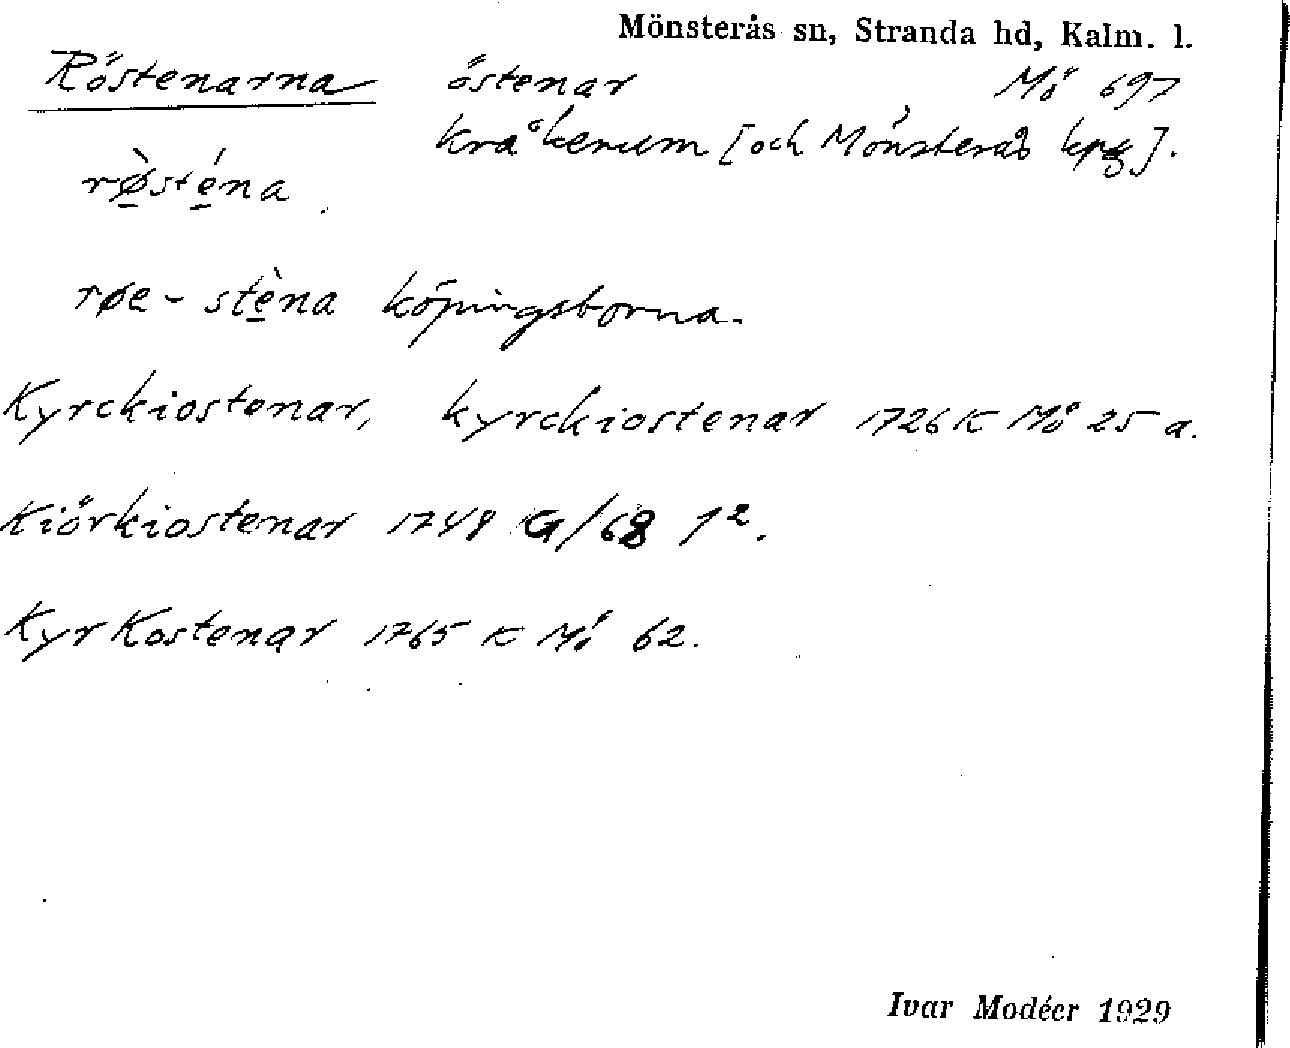 Mönsterås sn, Stranda hd, Kalm. l.
Röstenarna östenar Mö 697
Kråkerum [och Mönsterås kpg].
rø̀sténa
røe - stèna köpingsborna.
Kyrckiostenar, kyrckiostenar 1726 K Mö 25 a.
Kiörkiostenar 1748 G/68 1².
KyrKostenar 1765 K Mö 62.
Ivar Modéer 1929